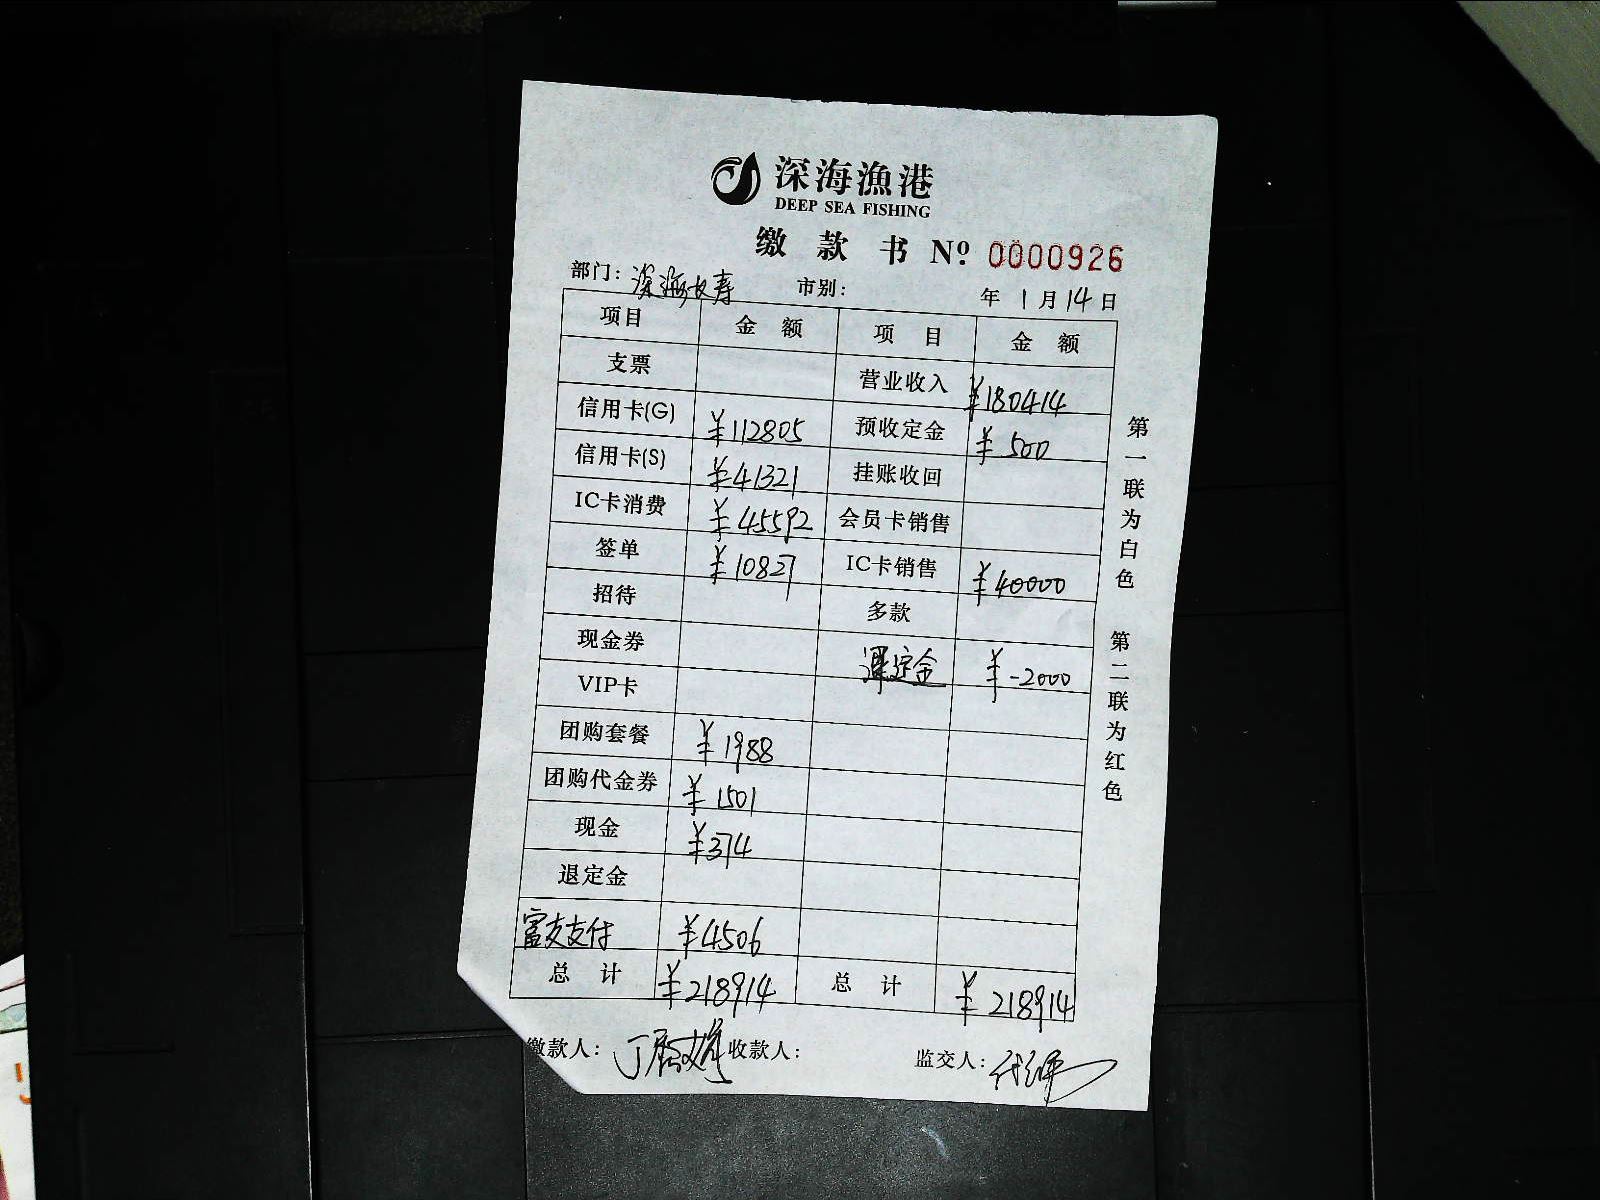 深海漁港
DEEP SEA FISHING
缴款书 Nº 0000926
部门：深海长寿 市别： 年 1 月 14 日
项目 金额 项目 金额
支票 营业收入 ¥180414
信用卡(G) ¥112805 预收定金 ¥500
信用卡(S) ¥41321 挂账收回
IC卡消费 ¥45592 会员卡销售
签单 ¥10827 IC卡销售 ¥40000
招待 多款
现金券 退定金 ¥-2000
VIP卡
团购套餐 ¥1988
团购代金券 ¥1501
现金 ¥374
退定金
富友支付 ¥4506
总计 ¥218914 总计 ¥218914
缴款人： 收款人： 监交人：
第一联为白色
第二联为红色